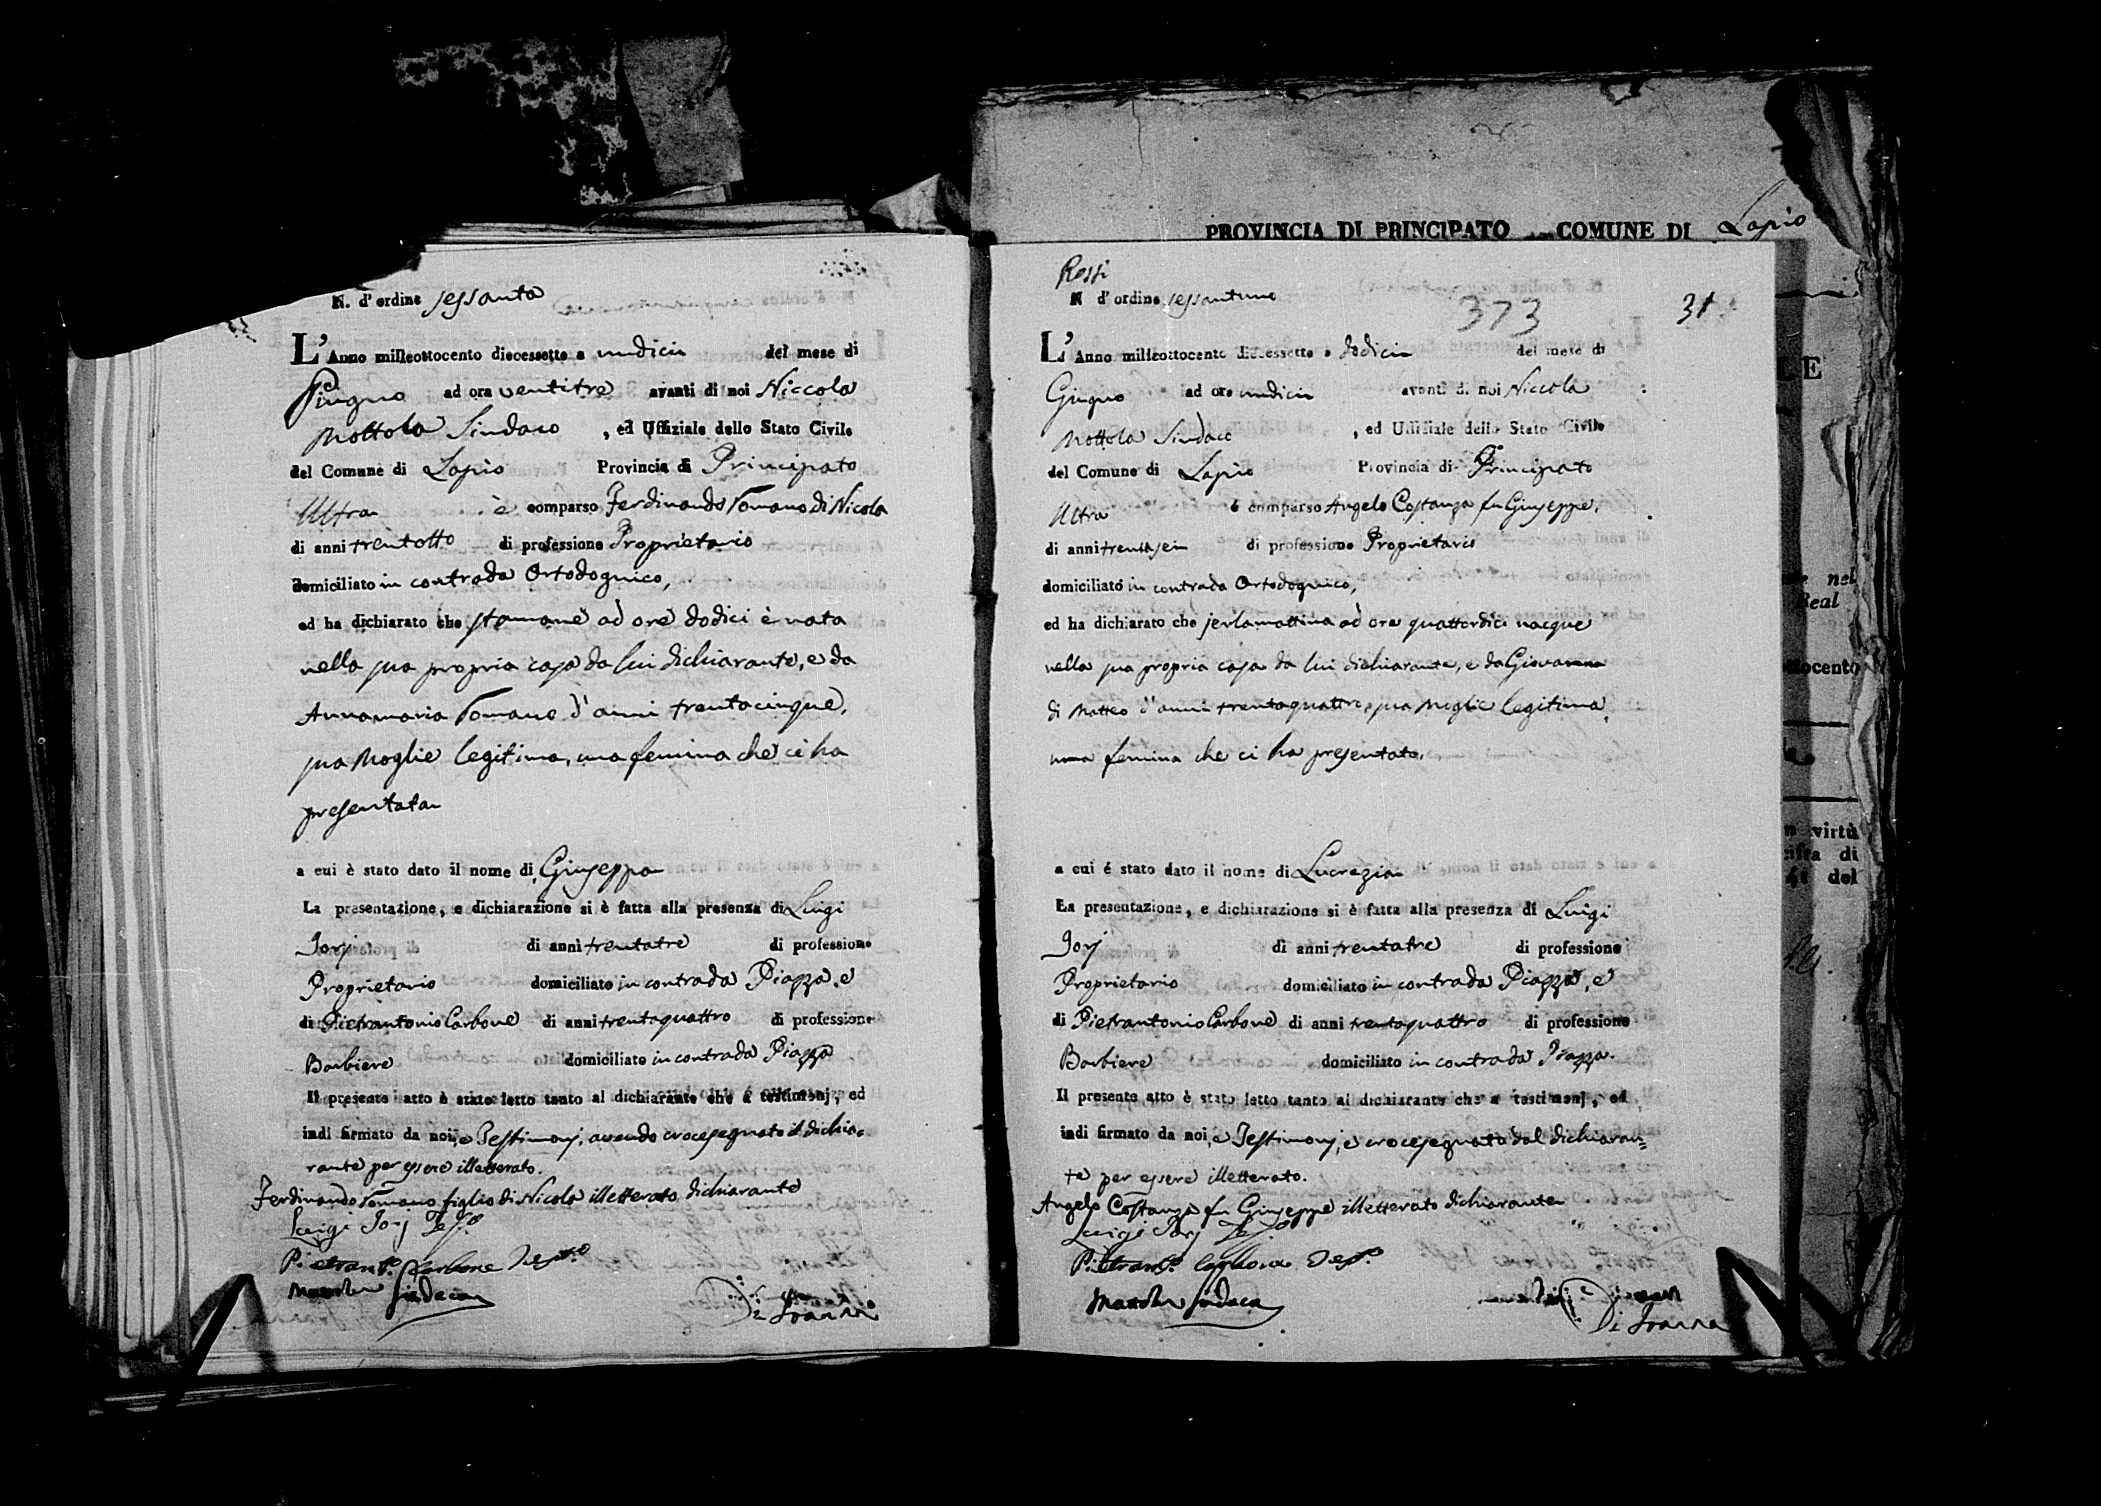 PROVINCIA DI PRINCIPATO COMUNE DI Lapio
N. d'ordine sessanta
L'Anno milleottocento diecessette a undici del mese di
Giugno ad ora ventitre avanti di noi Niccola
Mottola Sindaco , ed Uffiziale dello Stato Civile
del Comune di Lapio Provincia di Principato
Ultra è comparso Ferdinando Romano di Nicola
di anni trentotto di professione Proprietario
domiciliato in contrada Ortodognico,
ed ha dichiarato che stamane ad ore dodici è nata
nella sua propria casa da lui dichiarante, e da
Annamaria Romano d'anni trentacinque,
sua Moglie legitima, una femina che ci ha
presentata
a cui è stato dato il nome di Giuseppa
La presentazione, e dichiarazione si è fatta alla presenza di Luigi
Jorj di anni trentatre di professione
Proprietario domiciliato in contrada Piazza, e
di Pietrantonio Carbone di anni trentaquattro di professione
Barbiere domiciliato in contrada Piazza
Il presente atto è stato letto tanto al dichiarante che a testimonj, ed
indi firmato da noi, e Testimonj, avendo crocesegnato il dichia=
rante per essere illetterato.
Ferdinando Romano figlio di Nicola illetterato dichiarante
Luigi Jorj Tesso
Pietranto. Carbone Testo
Mottola Sindaco Di Joanna
Rossi
N d'ordine sessantuno
373 31
L'Anno milleottocento diecessette a dodici del mese di
Giugno ad ore undici avanti di noi Niccola
Mottola Sindaco , ed Uffiziale dello Stato Civile
del Comune di Lapio Provincia di Principato
Ultra é comparso Angelo Costanza fu Giuseppe,
di anni trentasei di professione Proprietario
domiciliato in contrada Ortodognico,
ed ha dichiarato che jerlamattina ad ore quattordici nacque
nella sua propria casa da lui dichiarante, e da Giovanna
di Matteo d'anni trentaquattro, sua Moglie legitima,
una femina che ci ha presentata.
a cui é stato dato il nome di Lucrezia
La presentazione, e dichiarazione si è fatta alla presenza di Luigi
Jorj di anni trentatre di professione
Proprietario domiciliato in contrada Piazza, e
di Pietrantonio Carbone di anni trentaquattro di professione
Barbiere domiciliato in contrada Piazza.
Il presente atto è stato letto tanto al dichiarante che a testimonj, ed
indi firmato da noi, e Testimonj, e crocesegnato dal dichiaran=
te per essere illetterato.
Angelo Costanza fu Giuseppe illetterato dichiarante
Luigi Jorj
Mottola Sindaco
Di Joanna
nel
Real
tocento
virtù
di
del